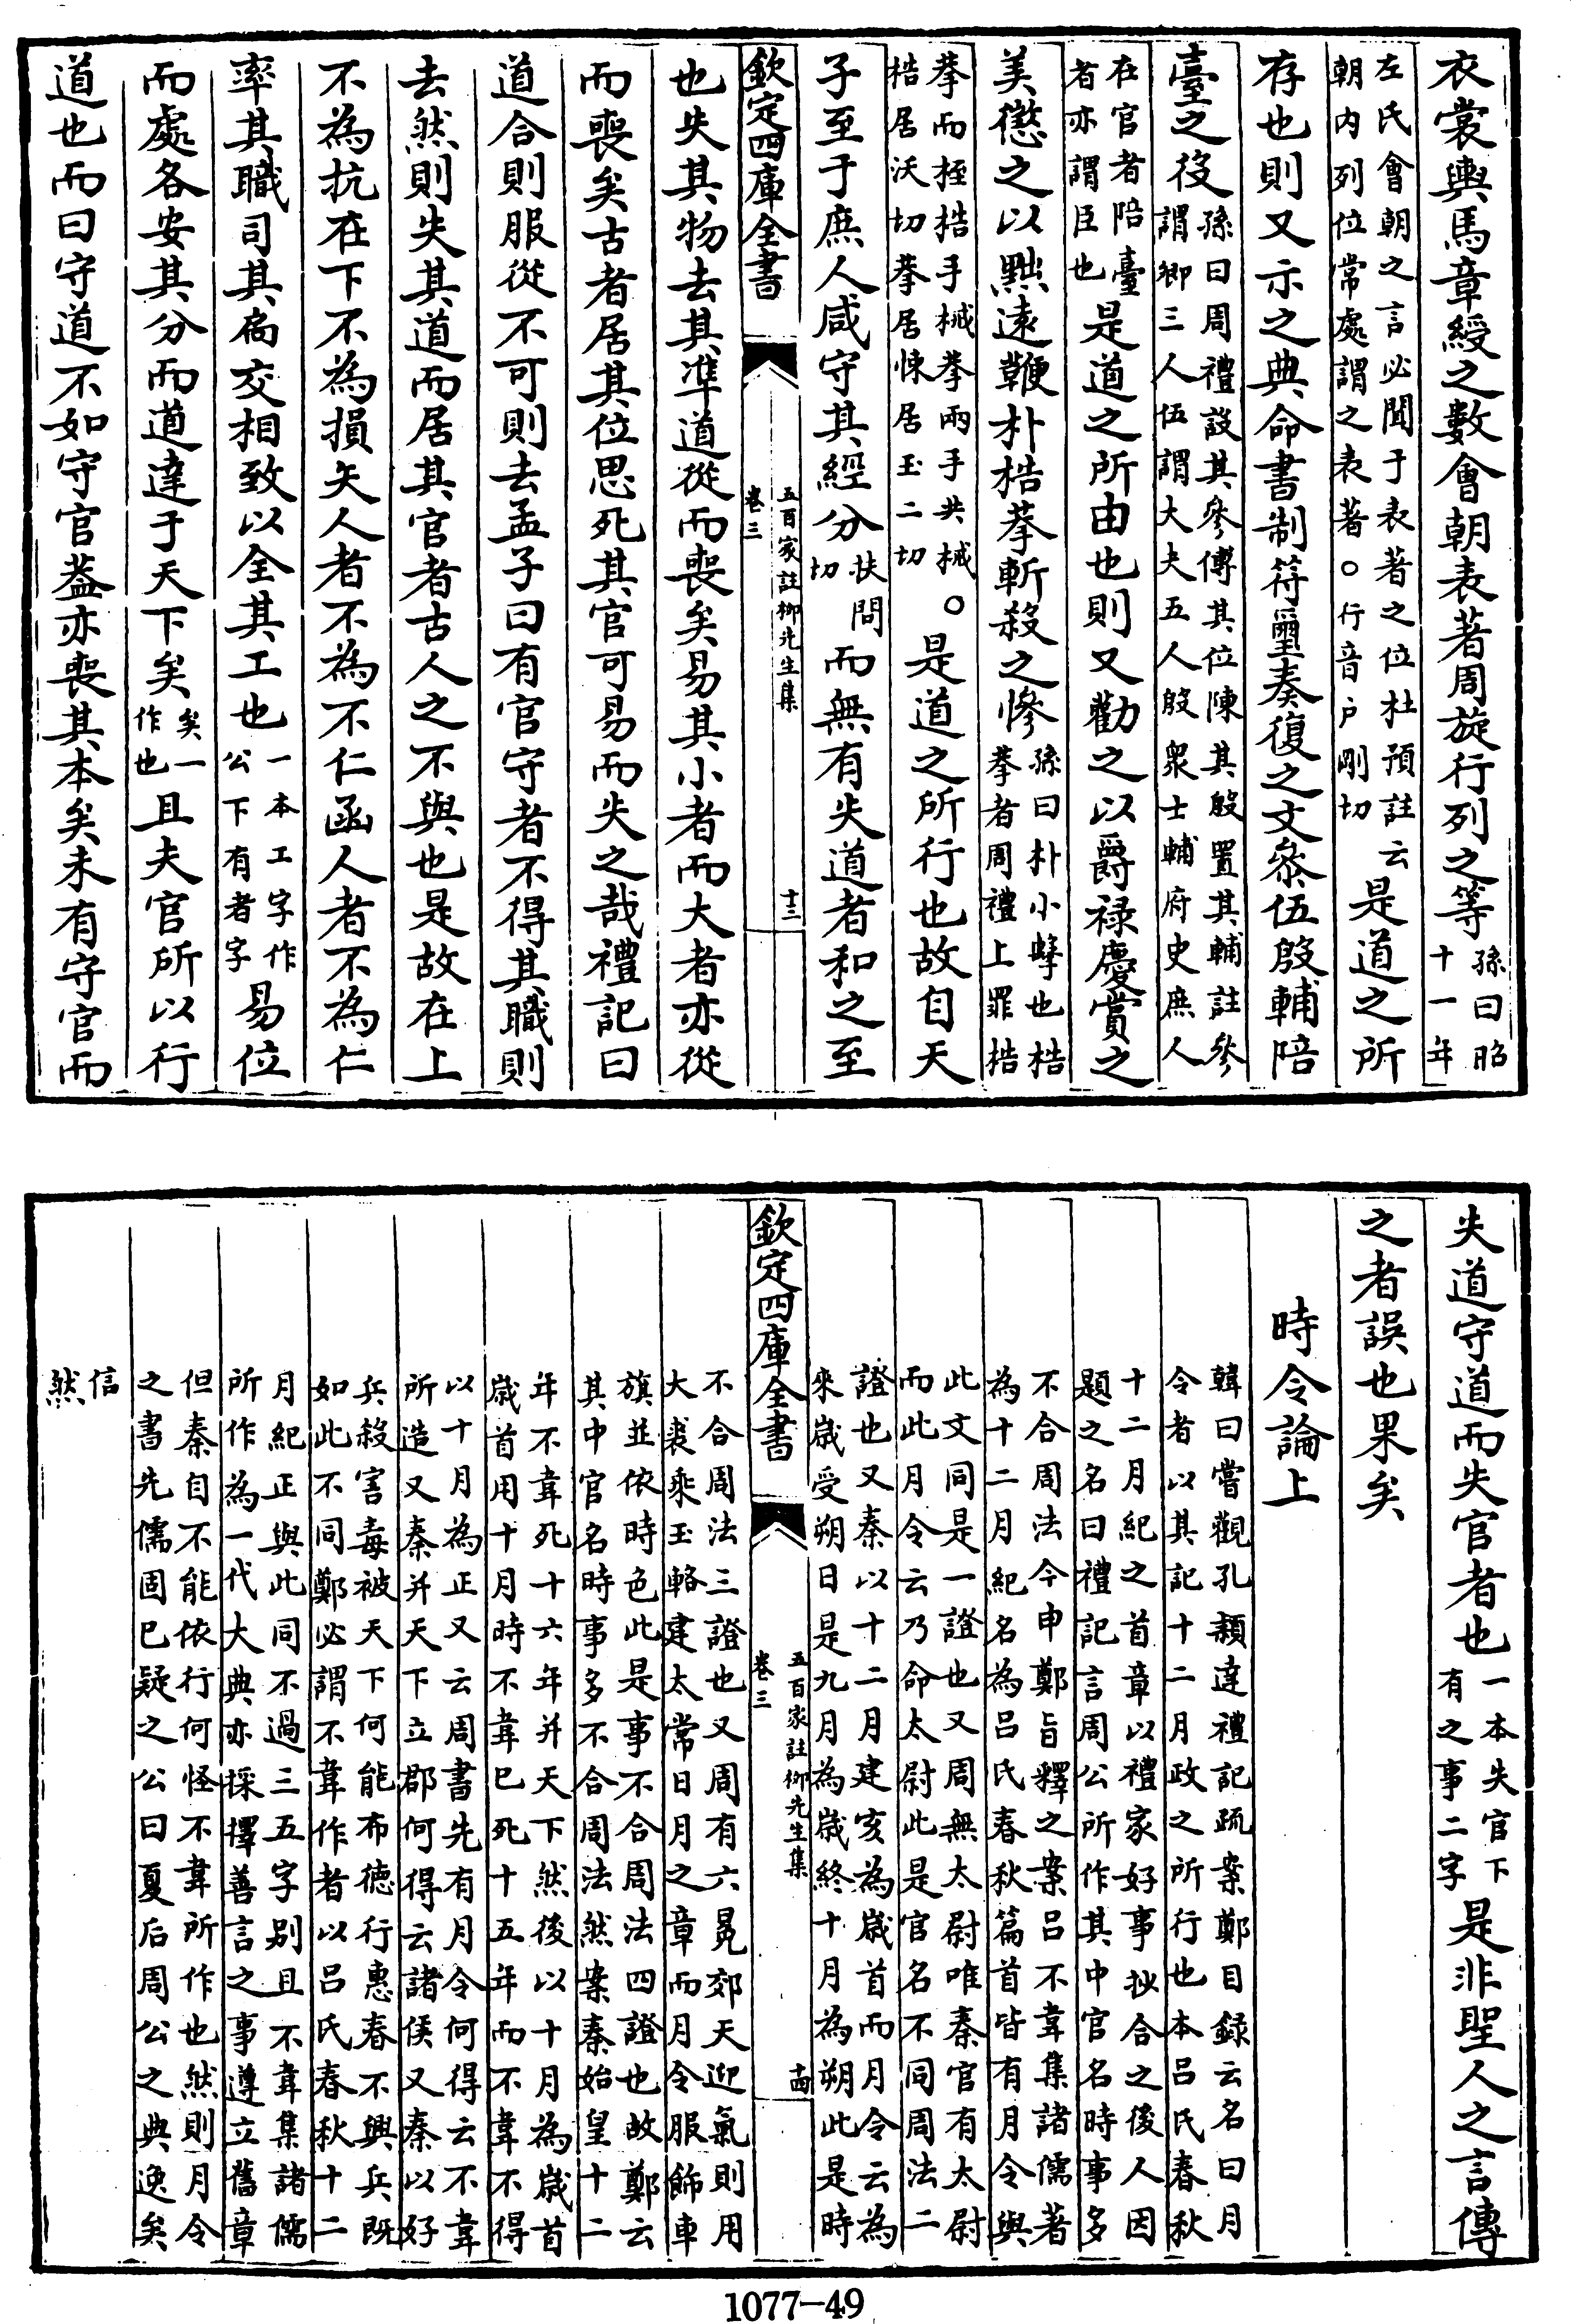 衣裳輿馬章綬之數會朝表著周旋行列之等孫曰昭十一年
左氏會朝之言必聞于表著之位杜預註云朝内列位常處謂之表著○行音户剛切是道之所
存也則又示之典命書制符璽奏復之文叅伍殷輔陪
臺之役孫曰周禮設其參傅其位陳其殷置其輔註參謂卿三人伍謂大夫五人殷衆士輔府史庶人
在官者陪臺者亦謂臣也是道之所由也則又勸之以爵禄慶賞之
美懲之以黜遠鞭朴梏拲斬殺之慘孫曰朴小䗬也梏拲者周禮上罪梏
拲而桎梏手械拲兩手共械○梏居沃切拲居悚居玉二切是道之所行也故自天
子至于庶人咸守其經分扶問切而無有失道者和之至
欽定四庫全書
五百家註栁先生集
卷三
十三
也失其物去其準道從而喪矣易其小者而大者亦從
而喪矣古者居其位思死其官可易而失之哉禮記曰
道合則服從不可則去孟子曰有官守者不得其職則
去然則失其道而居其官者古人之不與也是故在上
不為抗在下不為損矢人者不為不仁函人者不為仁
率其職司其局交相致以全其工也一本工字作公下有者字易位
而處各安其分而道達于天下矣矣一作也且夫官所以行
道也而曰守道不如守官葢亦喪其本矣未有守官而
失道守道而失官者也一本失官下有之事二字是非聖人之言傳
之者誤也果矣
時令論上
韓曰嘗觀孔頴達禮記疏案鄭目録云名曰月令者以其記十二月政之所行也本吕氏春秋
十二月紀之首章以禮家好事抄合之後人因題之名曰禮記言周公所作其中官名時事多
不合周法今申鄭旨釋之案吕不韋集諸儒著為十二月紀名為吕氏春秋篇首皆有月令與
此文同是一證也又周無太尉唯秦官有太尉而此月令云乃命太尉此是官名不同周法二
證也又秦以十二月建亥為歲首而月令云為來歲受朔日是九月為歲終十月為朔此是時
欽定四庫全書
五百家註栁先生集
卷三
十四
不合周法三證也又周有六冕郊天迎氣則用大裘乘玉輅建太常日月之章而月令服飾車
旗並依時色此是事不合周法四證也故鄭云其中官名時事多不合周法然案秦始皇十二
年不韋死十六年并天下然後以十月為歲首歲首用十月時不韋已死十五年而不韋不得
以十月為正又云周書先有月令何得云不韋所造又秦并天下立郡何得云諸侯又秦以好
兵殺害毒被天下何能布德行惠春不興兵既如此不同鄭必謂不韋作者以吕氏春秋十二
月紀正與此同不過三五字别且不韋集諸儒所作為一代大典亦採擇善言之事遵立舊章
但秦自不能依行何怪不韋所作也然則月令之書先儒固已疑之公曰夏后周公之典逸矣
信然
1077-49